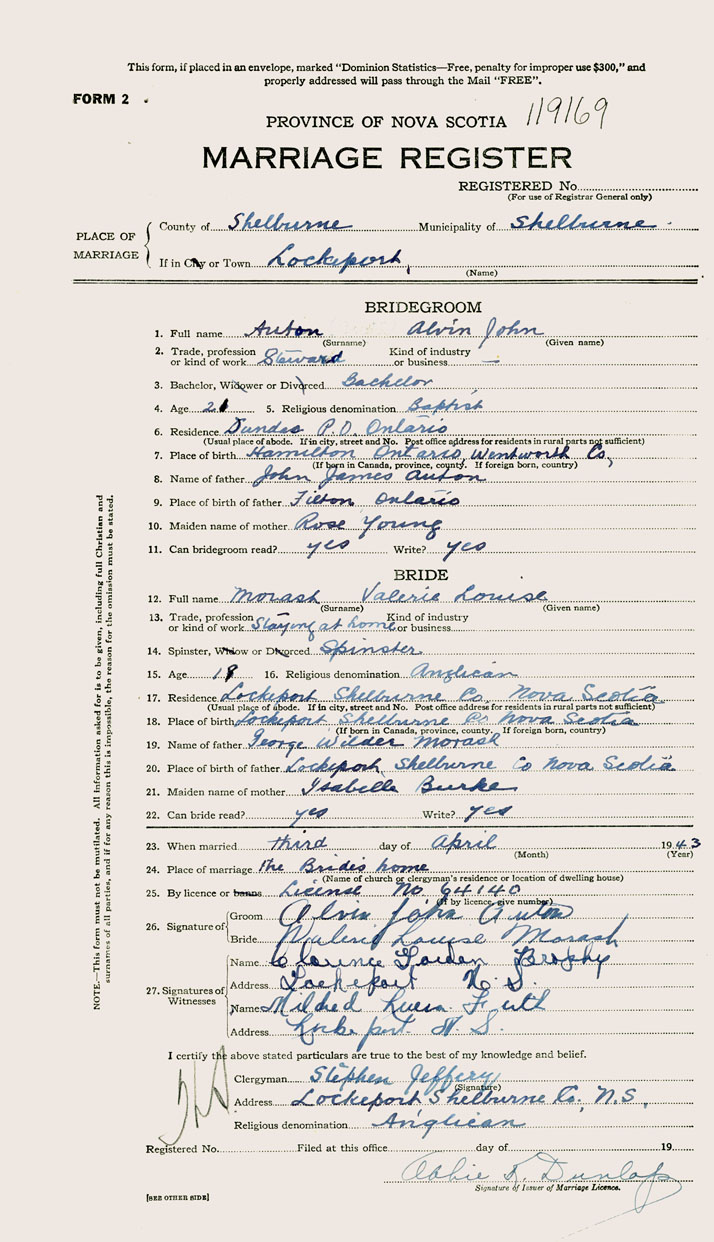 This form, if placed in an envelope, marked "Dominion Statistics—Free, penalty for improper use $300," and
properly addressed will pass through the Mail "FREE".
FORM 2
PROVINCE OF NOVA SCOTIA 119169
MARRIAGE REGISTER
REGISTERED No.
(For use of Registrar General only)
PLACE OF MARRIAGE
County of Shelburne Municipality of Shelburne
If in City or Town Lockeport,
(Name)
BRIDEGROOM
1. Full name Auton Alvin John
(Surname) (Given name)
2. Trade, profession or kind of work Steward Kind of industry or business —
3. Bachelor, Widower or Divorced Bachelor
4. Age 21 5. Religious denomination Baptist
6. Residence Dundas P.O. Ontario
(Usual place of abode. If in city, street and No. Post office address for residents in rural parts not sufficient)
7. Place of birth Hamilton Ontario, Wentworth Co,
(If born in Canada, province, county. If foreign born, country)
8. Name of father John James Auton
9. Place of birth of father Tilton Ontario
10. Maiden name of mother Rose Young
11. Can bridegroom read? yes Write? yes
BRIDE
12. Full name Morash Valerie Louise
(Surname) (Given name)
13. Trade, profession or kind of work Staying at home Kind of industry or business
14. Spinster, Widow or Divorced Spinster
15. Age 19 16. Religious denomination Anglican
17. Residence Lockeport Shelburne Co, Nova Scotia
(Usual place of abode. If in city, street and No. Post office address for residents in rural parts not sufficient)
18. Place of birth Lockeport Shelburne Co Nova Scotia
(If born in Canada, province, county. If foreign born, country)
19. Name of father George Wilder Morash
20. Place of birth of father Lockeport Shelburne Co Nova Scotia
21. Maiden name of mother Isabelle Burke
22. Can bride read? yes Write? yes
23. When married third day of April 1943
(Month) (Year)
24. Place of marriage the Brides home
(Name of church or clergyman's residence or location of dwelling house)
25. By licence or banns License No 64140
(If by licence, give number)
26. Signature of
Groom Alvin John Auton
Bride Valerie Louise Morash
27. Signatures of Witnesses
Name Clarence Brophy
Address Lockeport N.S.
Name Mildred
Address Lockeport. N.S.
I certify the above stated particulars are true to the best of my knowledge and belief.
Clergyman Stephen Jeffery
(Signature)
Address Lockeport Shelburne Co., N.S,
Religious denomination Anglican
Registered No. Filed at this office day of 19
Abbie R. Dunlop
Signature of Issuer of Marriage Licence.
[SEE OTHER SIDE]
NOTE.—This form must not be mutilated. All information asked for is to be given, including full Christian and
surnames of all parties, and if for any reason this is impossible, the reason for the omission must be stated.